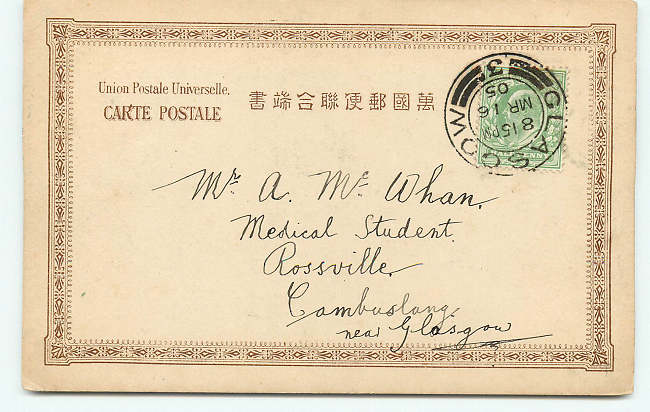 Union Postale Universelle.
CARTE POSTALE
書端合聯便郵國萬
GLASGOW
8 15PM
MR 16
05
3
Mr A. Mc Whan.
Medical Student.
Rossville,
Cambuslang,
near Glasgow